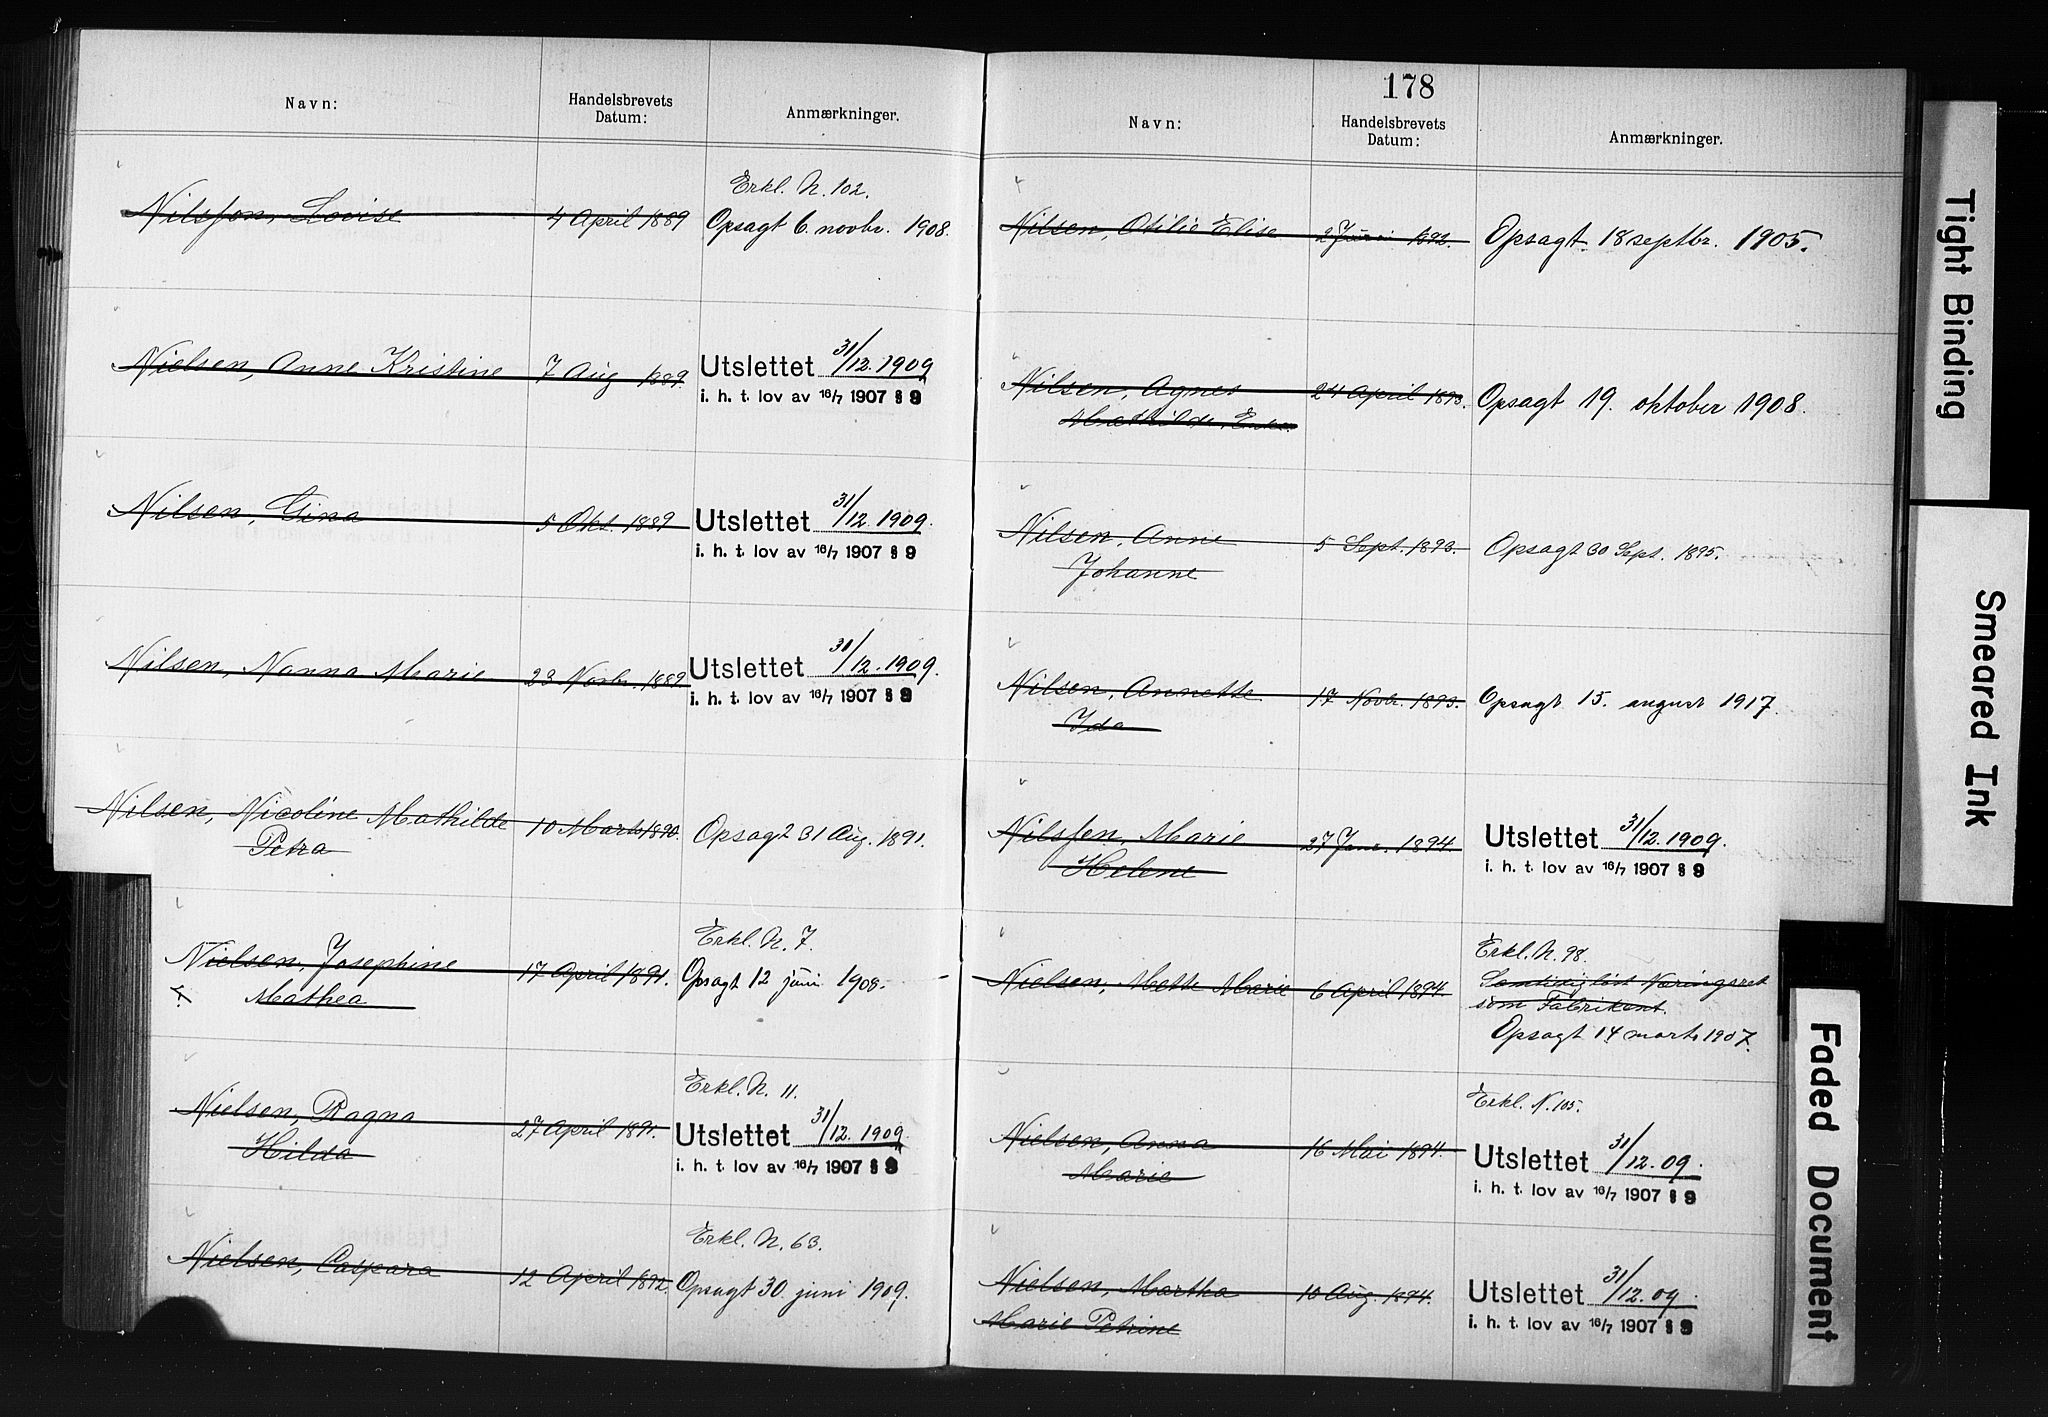 Navn:
Handelsbrevets
Datum:
Anmærkninger.
Nilsson, Lovise
4 April 1889
Erkl. N. 102.
Opsagt 6. novbr. 1908.
Nielsen, Anne Kristine
7 Aug 1889.
Utslettet 31/12. 1909
i. h. t. lov av 16/7 1907 § 9
Nilsen, Gina
5 Okt. 1889
Utslettet 31/12. 1909.
i. h. t. lov av 16/7 1907 § 9
Nilsen, Nanna Marie
23 Novbr. 1889
Utslettet 31/12. 1909.
i. h. t. lov av 16/7 1907 § 9
Nilsen, Nicoline Mathilde
Petra
10 Marts 1890.
Opsagt 31 Aug. 1891.
Nielsen, Josephine
Mathea
17 April 1891.
Erkl. N. 7.
Opsagt 12 juni 1908.
Nielsen, Ragna
Hilda
27 April 1891.
Erkl. N. 11.
Utslettet 31/12. 1909.
i. h. t. lov av 16/7 1907 § 9
Nielsen, Caspara
12 April 1892.
Erkl. N. 63.
Opsagt 30. juni 1909.
178
Navn:
Handelsbrevets
Datum:
Anmærkninger.
Nilsen, Otilie Elise
2 Juni
Opsagt 18 septbr. 1905.
Nilsen, Agnes
Mathilde, Enke.
24 April 1893.
Opsagt 19. oktober 1908.
Nilsen, Anne
Johanne
5 Sept. 1893.
Opsagt 30 Sept. 1895.
Nilsen, Annette
Ida
17 Novbr. 1893.
Opsagt 15. august 1917.
Nilssen, Marie
Helene
27 Jan. 1894.
Utslettet 31/12. 1909.
i. h. t. lov av 16/7 1907 § 9
Nielsen, Mette Marie
6 April 1894.
Erkl. N. 98.
Samtidig løst Næringsret
som Fabrikant.
Opsagt 14 marts 1907.
Nielsen, Anna
Marie
16 Mai 1894.
Erkl. N. 105.
Utslettet 31/12. 09.
i. h. t. lov av 16/7 1907 § 9
Nielsen, Martha
Marie Petrine
10 Aug. 1894.
Utslettet 31/12. 09.
i. h. t. lov av 16/7 1907 § 9
Tight Binding
Smeared Ink
Faded Document